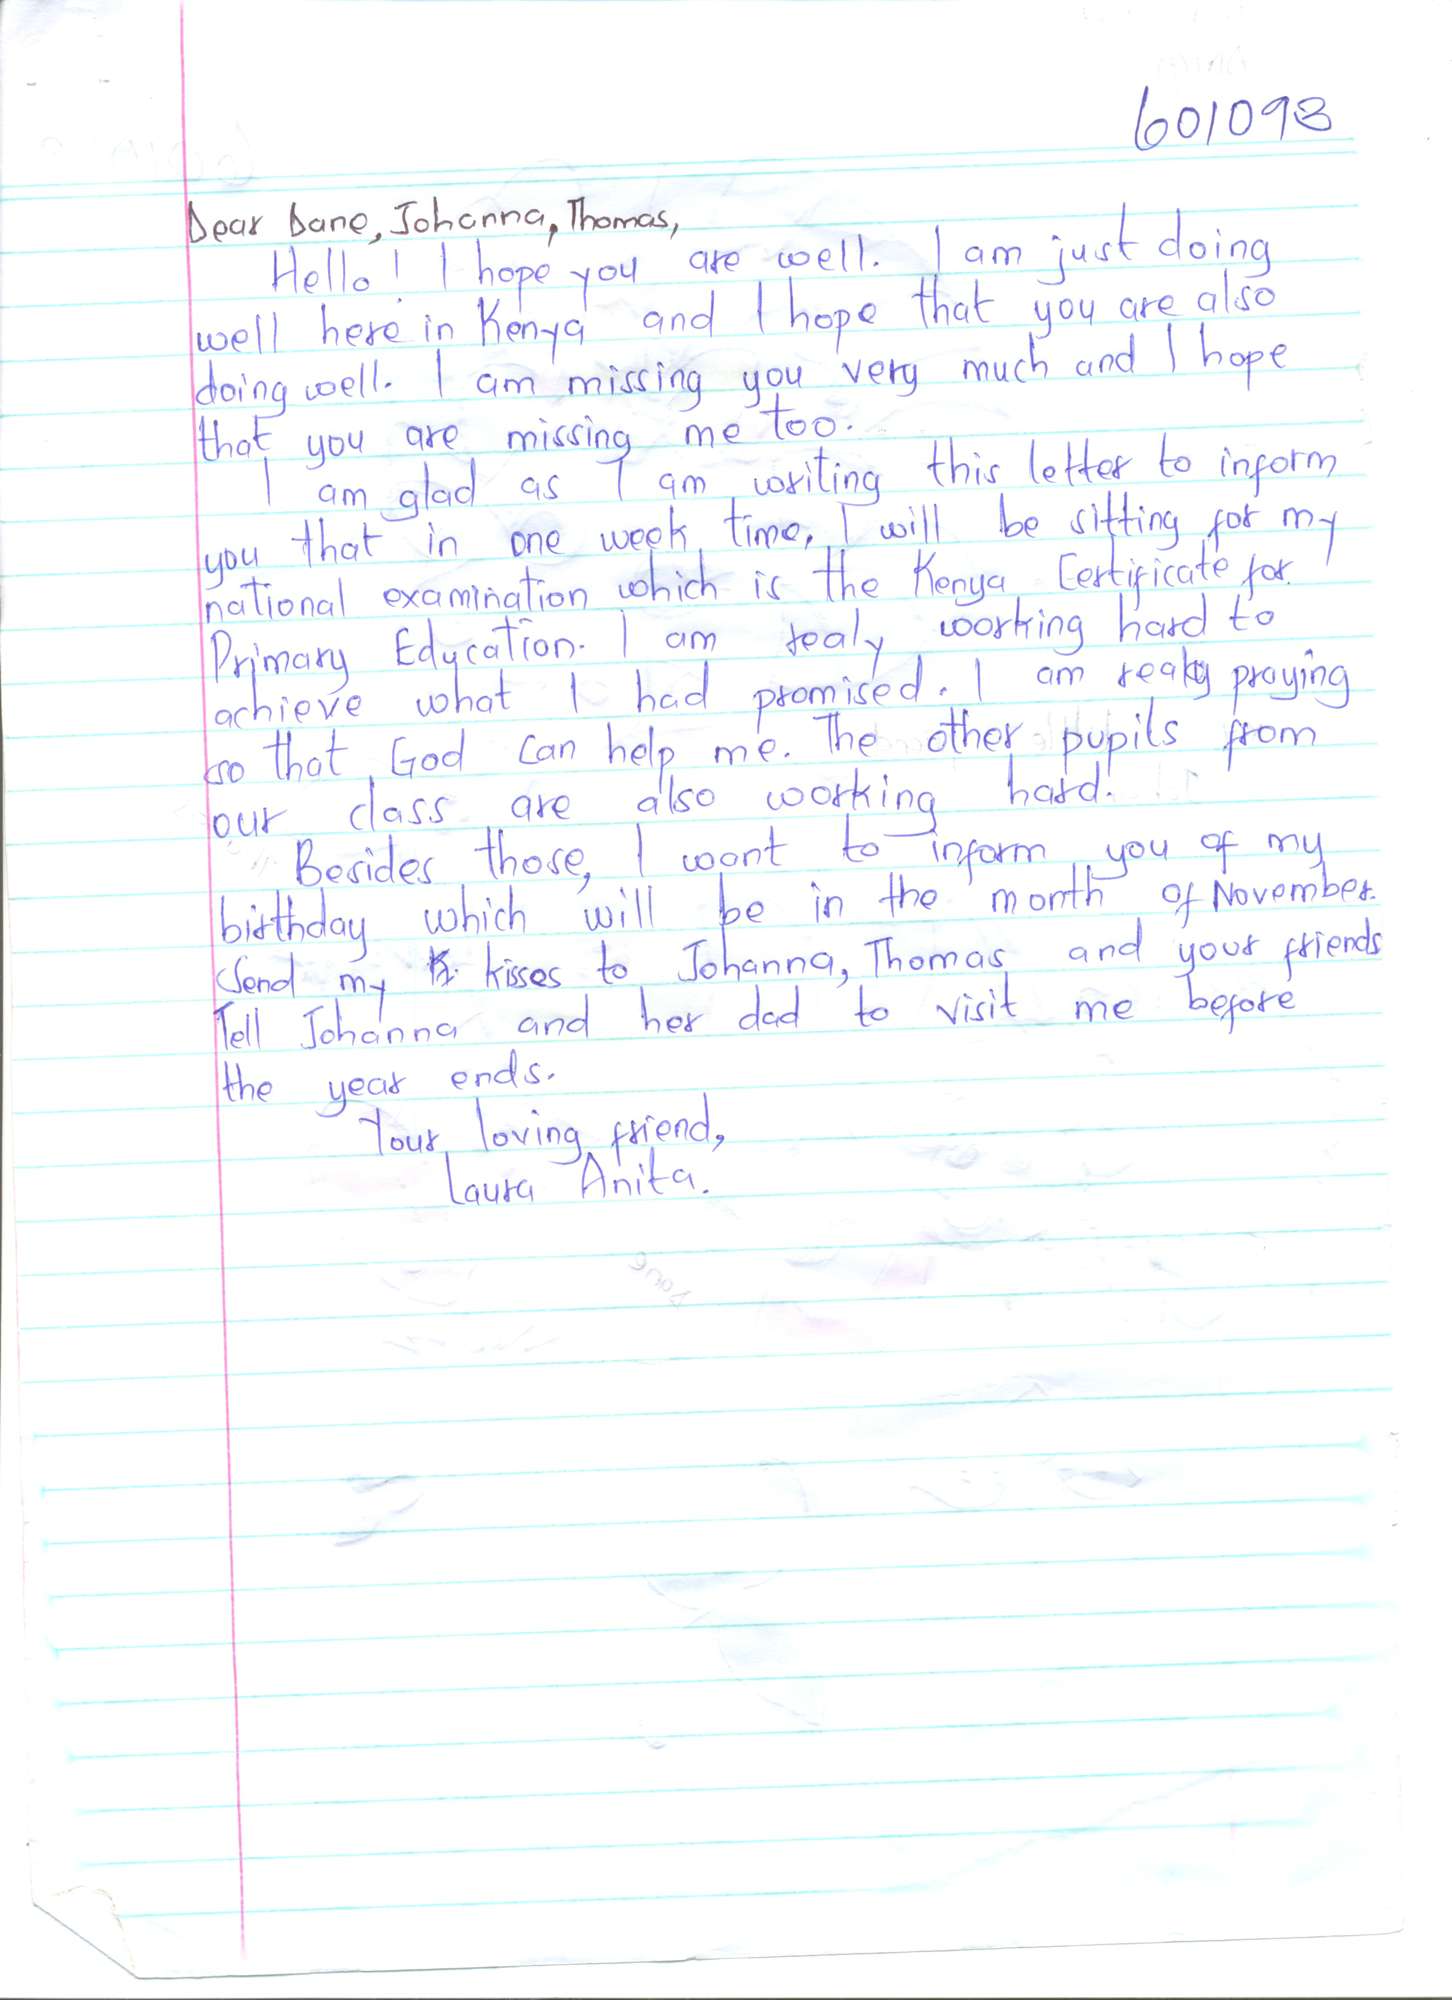 601098
Dear Dane, Johanna, Thomas,
Hello! I hope you are well. I am just doing
well here in Kenya and I hope that you are also
doing well. I am missing you very much and I hope
that you are missing me too.
I am glad as I am writing this letter to inform
you that in one week time, I will be sitting for my
national examination which is the Kenya Certificate for
Primary Education. I am realy working hard to
achieve what I had promised. I am realy praying
so that God can help me. The other pupils from
our class are also working hard.
Besides those, I want to inform you of my
birthday which will be in the month of November.
Send my kisses to Johanna, Thomas and your friends
Tell Johanna and her dad to visit me before
the year ends.
Your loving friend,
Laura Anita.